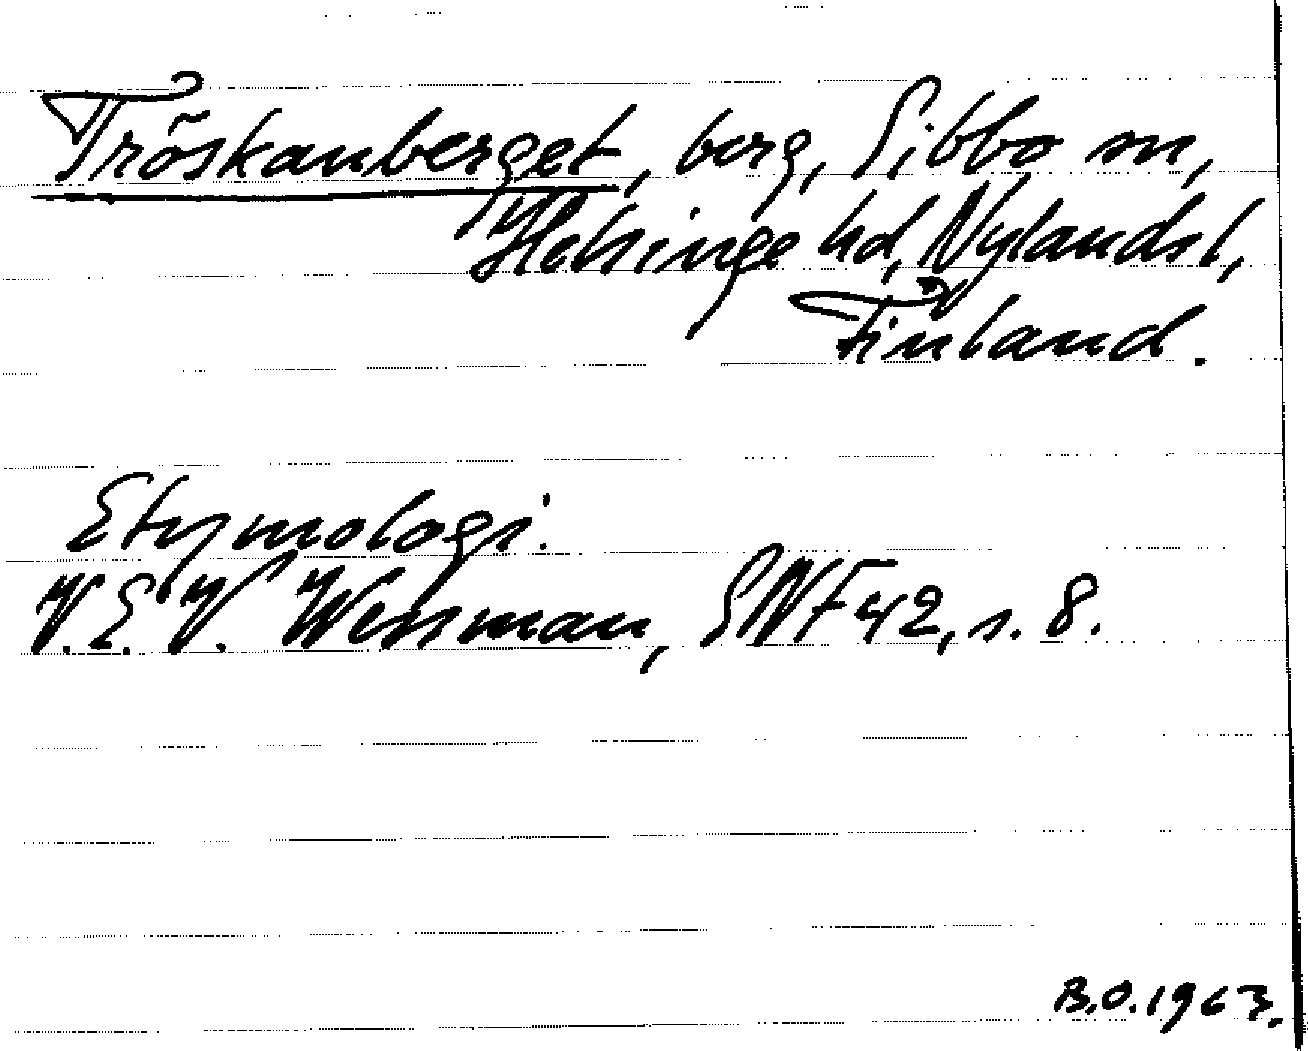 Tröskanberget, berg, Sibbo sn,
Helsinge hd, Nylands l,
Finland.
Etymologi.
V. E. V. Wessman, SNF 42, s. 8.
B.O. 1963.